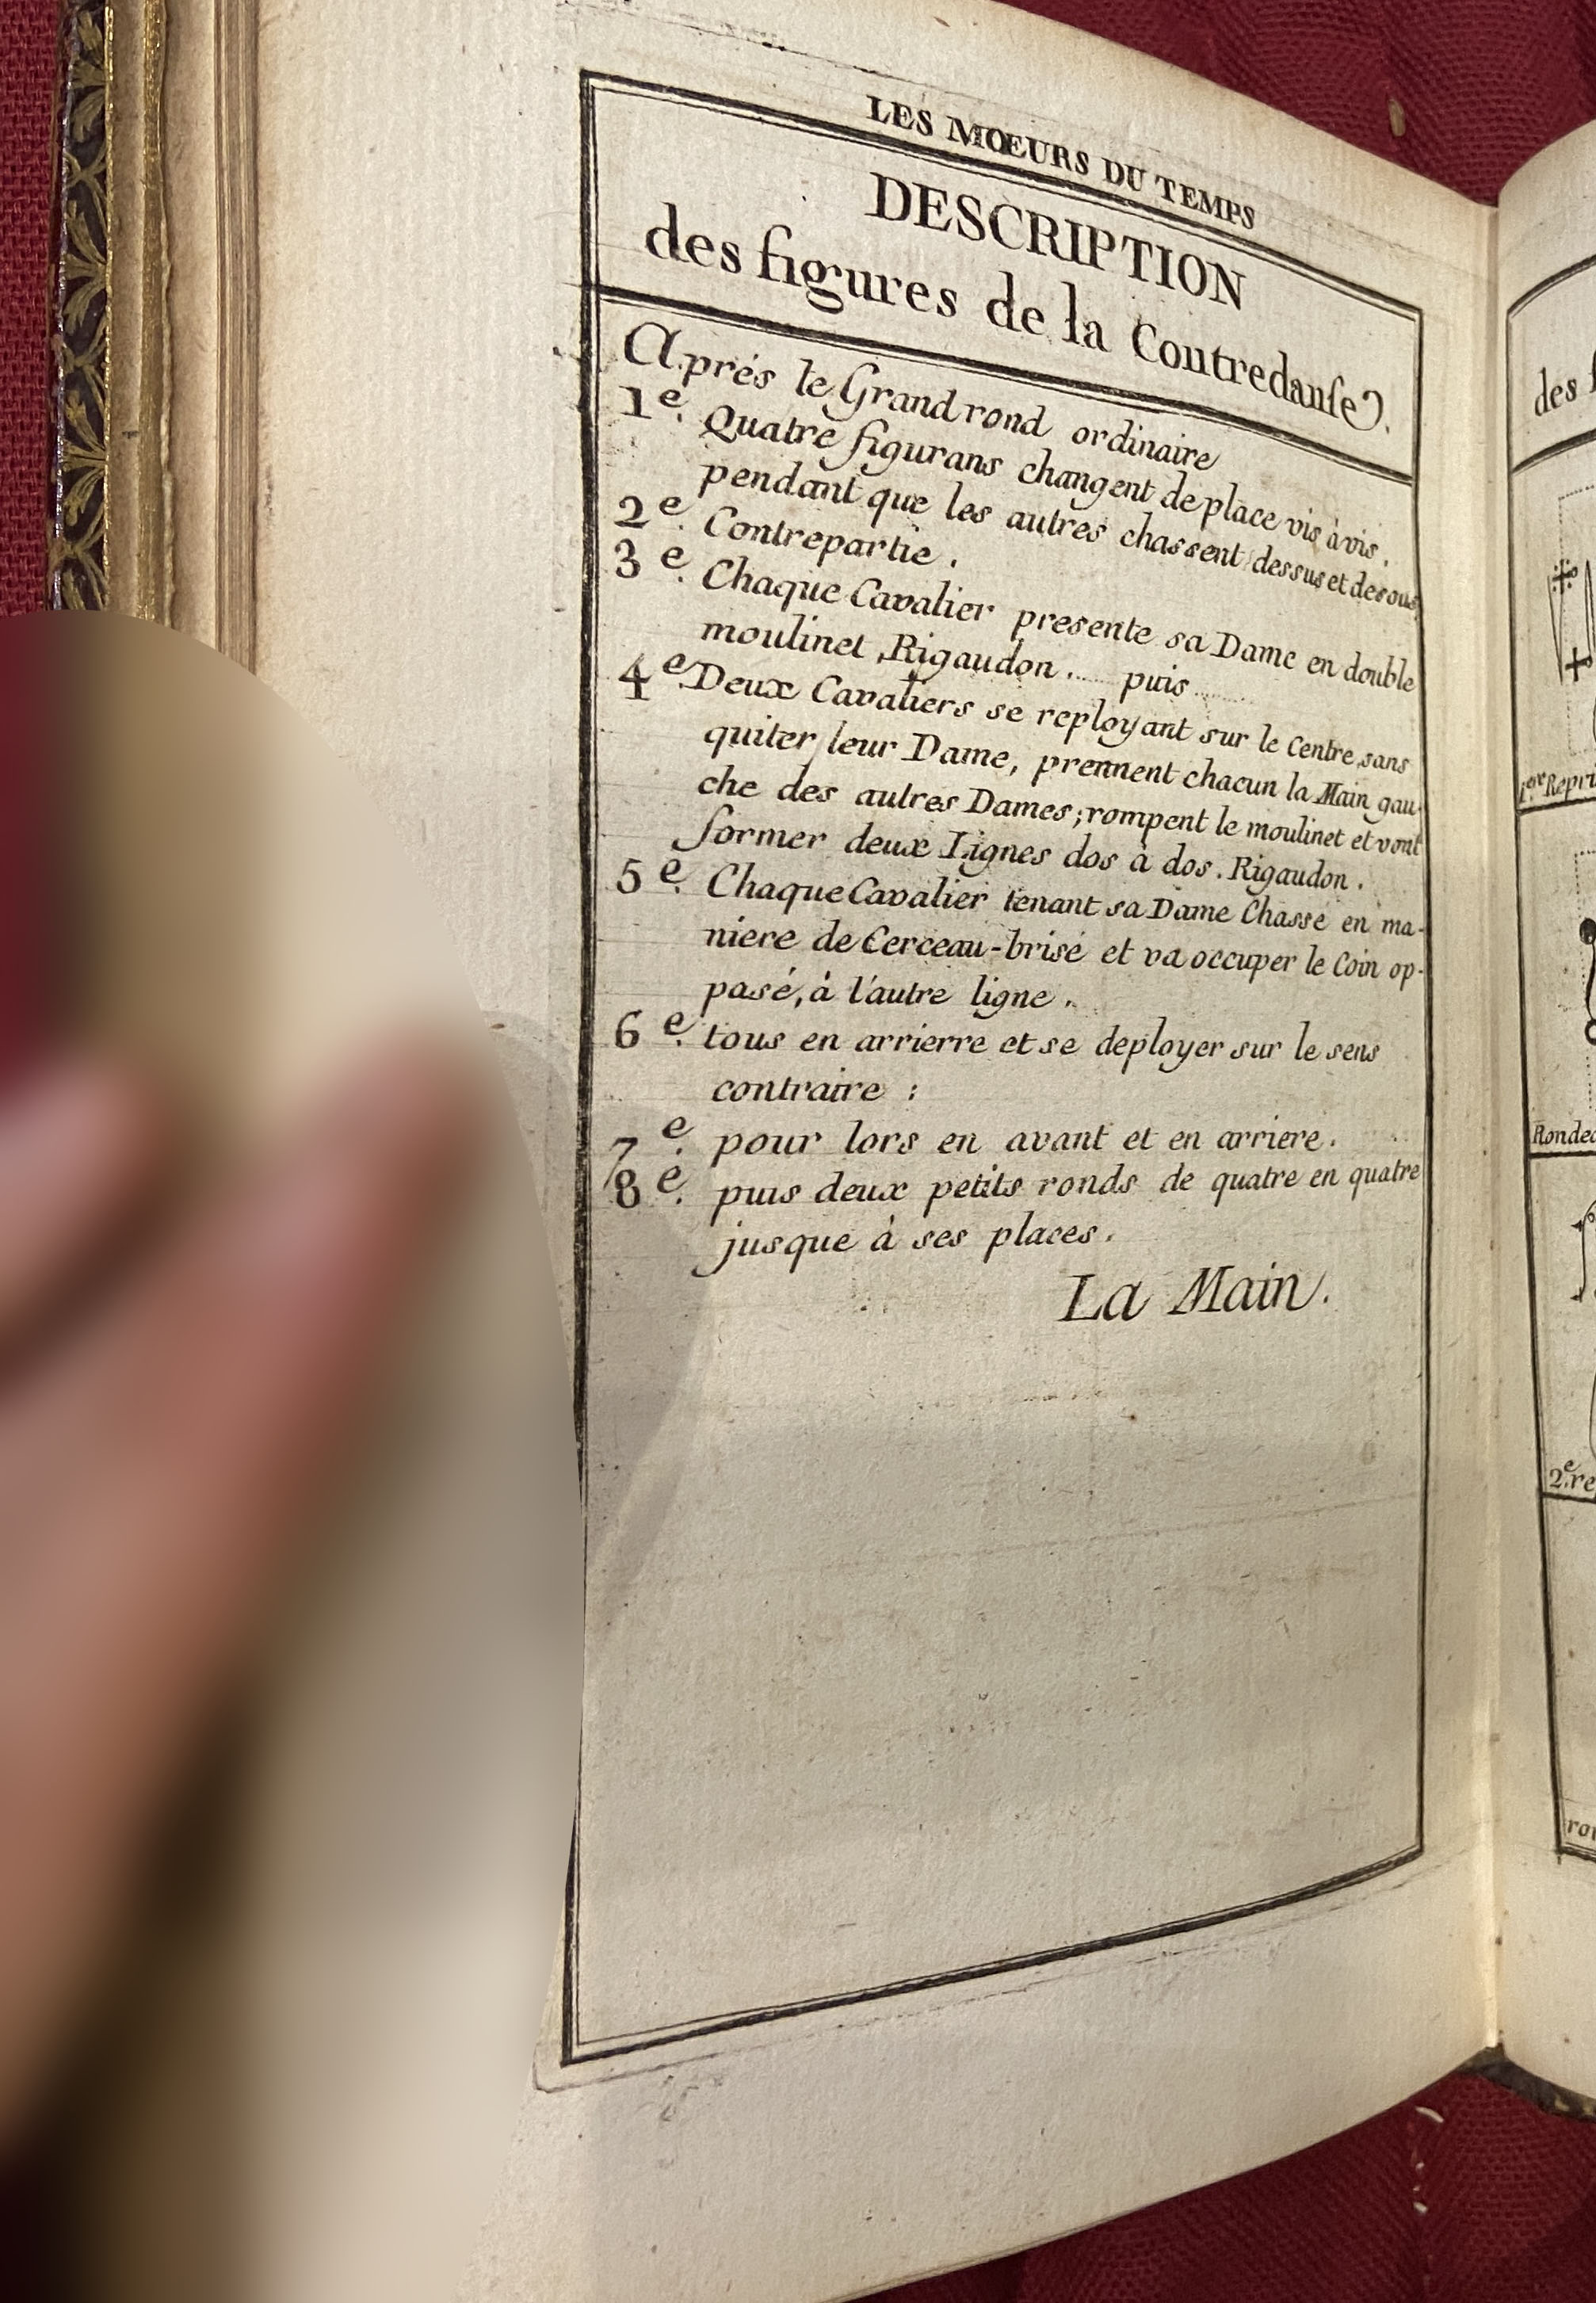 LES MŒURS DU TEMPS
DESCRIPTION
des figures de la Contredanſe.
Aprés le Grand rond ordinaire
1e. Quatre figurans changent de place vis à vis.
pendant que les autres chassent dessus et desous
2e. Contrepartie.
3e. Chaque Cavalier presente sa Dame en double
moulinet, Rigaudon.... puis.....
4e. Deux Cavaliers se reployant sur le Centre, sans
quiter leur Dame, prennent chacun la Main gau-
che des autres Dames; rompent le moulinet et vont
former deux Lignes dos à dos. Rigaudon.
5e. Chaque Cavalier tenant sa Dame Chasse en ma-
niere de Cerceau-brisé et va occuper le Coin op-
pasé, à l'autre ligne.
6e. tous en arrierre et se deployer sur le sens
contraire :
7e. pour lors en avant et en arriere.
8e. puis deux petits ronds de quatre en quatre
jusque à ses places.
La Main.
des
1ere Repri
Ronde
2e. re
ro